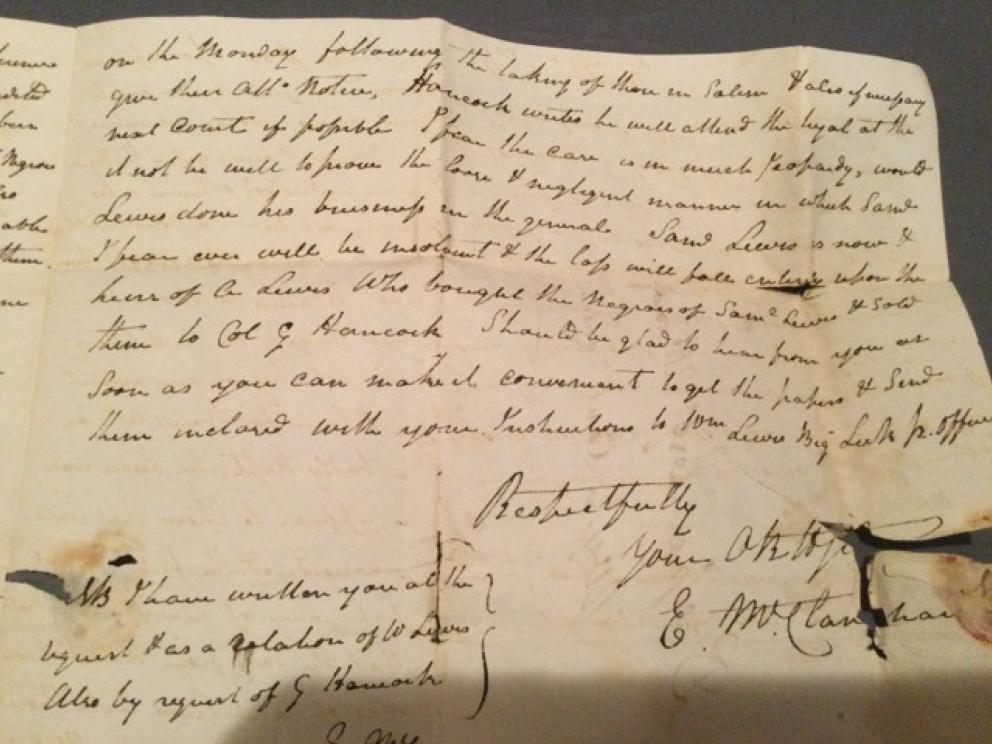 on the Monday following the taking of them in Salem & also if necessary
give their Atto Notice, Hancock writes he will attend the tryal at the
next Court if possible I fear the case is in much Jeopardy, would
it not be well to prove the loose & negligent manner in which Saml
Lewis done his business in the general Saml Lewis is now &
I fear ever will be insolvent & the loss will fall entirely upon the
heirs of A Lewis Who bought the Negroes of Saml Lewis & Sold
them to Col G Hancock Should be glad to hear from you as
Soon as you can make it convenient to get the papers & Send
them inclosed with your Instructions to Wm Lewis Big Lick P. Office
Respectfully
Your
E McClanahan
NB I have written you at the
request & as a relation of W Lewis
Also by request of G Hancock
E Mc
negroes
able
them